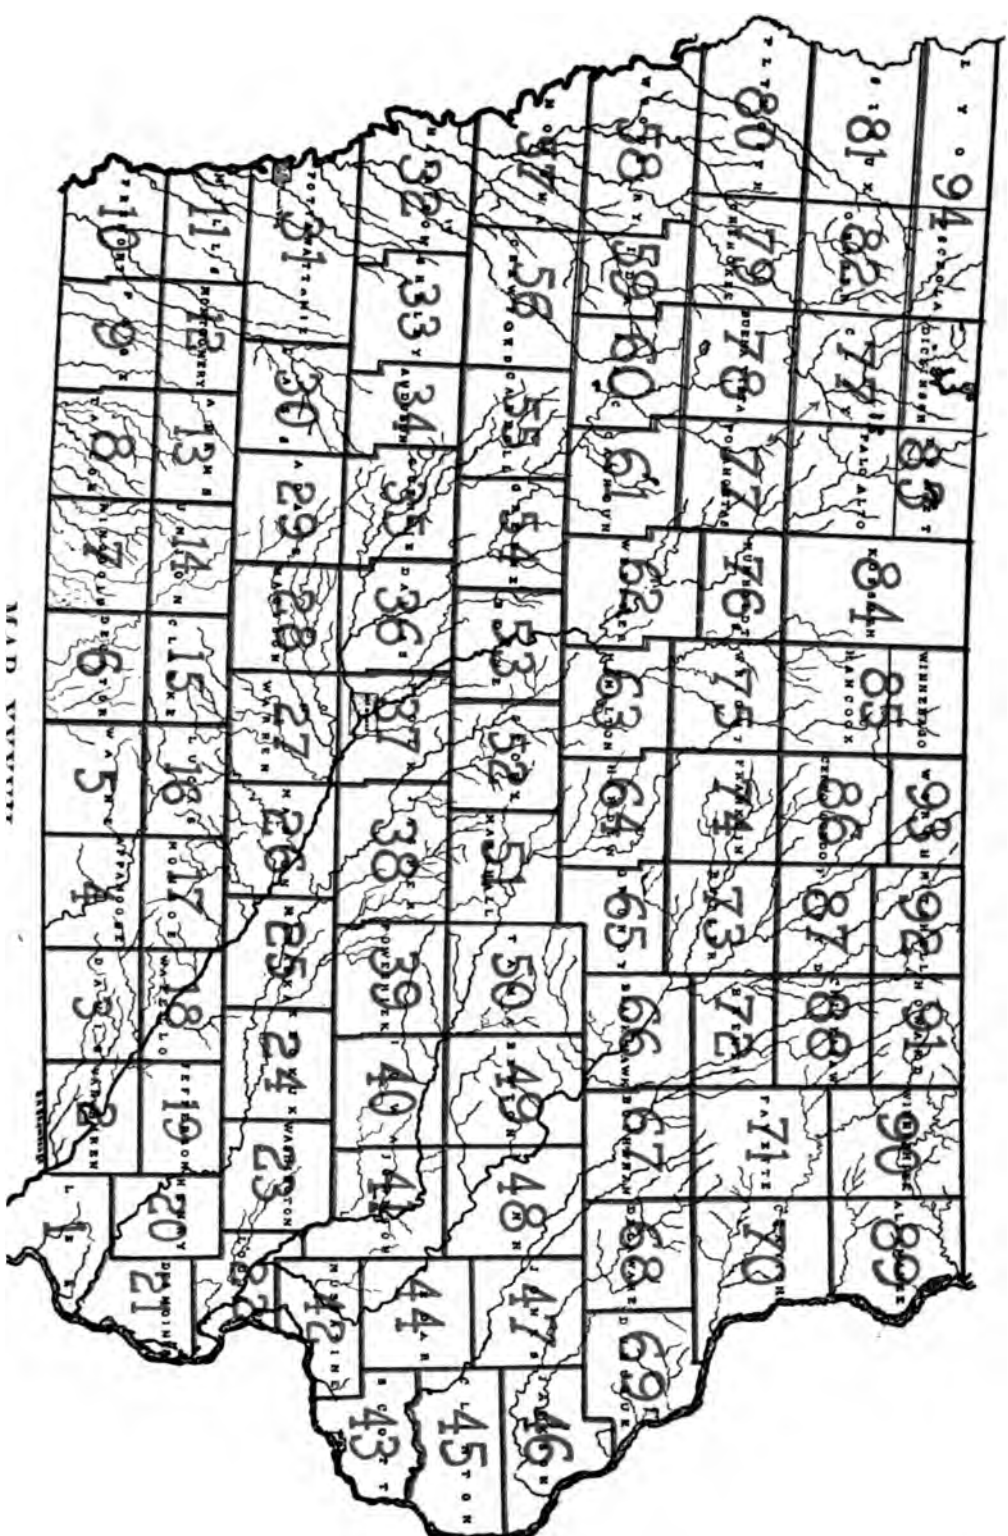 LYON
94
OSCEOLA
DICKINSON
EMMET
83
WINNEBAGO
WORTH
93
MITCHELL
92
HOWARD
91
WINNESHIEK
90
ALLAMAKEE
89
SIOUX
81
OBRIEN
82
CLAY
77
PALO ALTO
KOSSUTH
84
HANCOCK
85
CERRO GORDO
86
FLOYD
87
CHICKASAW
88
PLYMOUTH
80
CHEROKEE
79
BUENA VISTA
78
POCAHONTAS
77
HUMBOLDT
76
WRIGHT
75
FRANKLIN
74
BUTLER
73
BREMER
72
FAYETTE
71
CLAYTON
70
WOODBURY
58
IDA
59
SAC
60
CALHOUN
61
WEBSTER
62
HAMILTON
63
HARDIN
64
GRUNDY
65
BLACKHAWK
66
BUCHANAN
67
DELAWARE
68
DUBUQUE
69
MONONA
57
CRAWFORD
56
CARROLL
55
GREENE
54
BOONE
53
STORY
52
MARSHALL
51
TAMA
50
BENTON
49
LINN
48
JONES
47
JACKSON
46
HARRISON
32
SHELBY
33
AUDUBON
34
GUTHRIE
35
DALLAS
36
POLK
37
JASPER
38
POWESHIEK
39
IOWA
40
JOHNSON
41
CEDAR
44
CLINTON
45
SCOTT
43
POTTAWATTAMIE
31
CASS
30
ADAIR
29
MADISON
28
WARREN
27
MARION
26
MAHASKA
25
KEOKUK
24
WASHINGTON
23
MUSCATINE
42
LOUISA
22
MILLS
11
MONTGOMERY
12
ADAMS
13
UNION
14
CLARKE
15
LUCAS
16
MONROE
17
WAPELLO
18
JEFFERSON
19
HENRY
20
DES MOINES
21
FREMONT
10
PAGE
9
TAYLOR
8
RINGGOLD
7
DECATUR
6
WAYNE
5
APPANOOSE
4
DAVIS
3
VAN BUREN
2
LEE
1